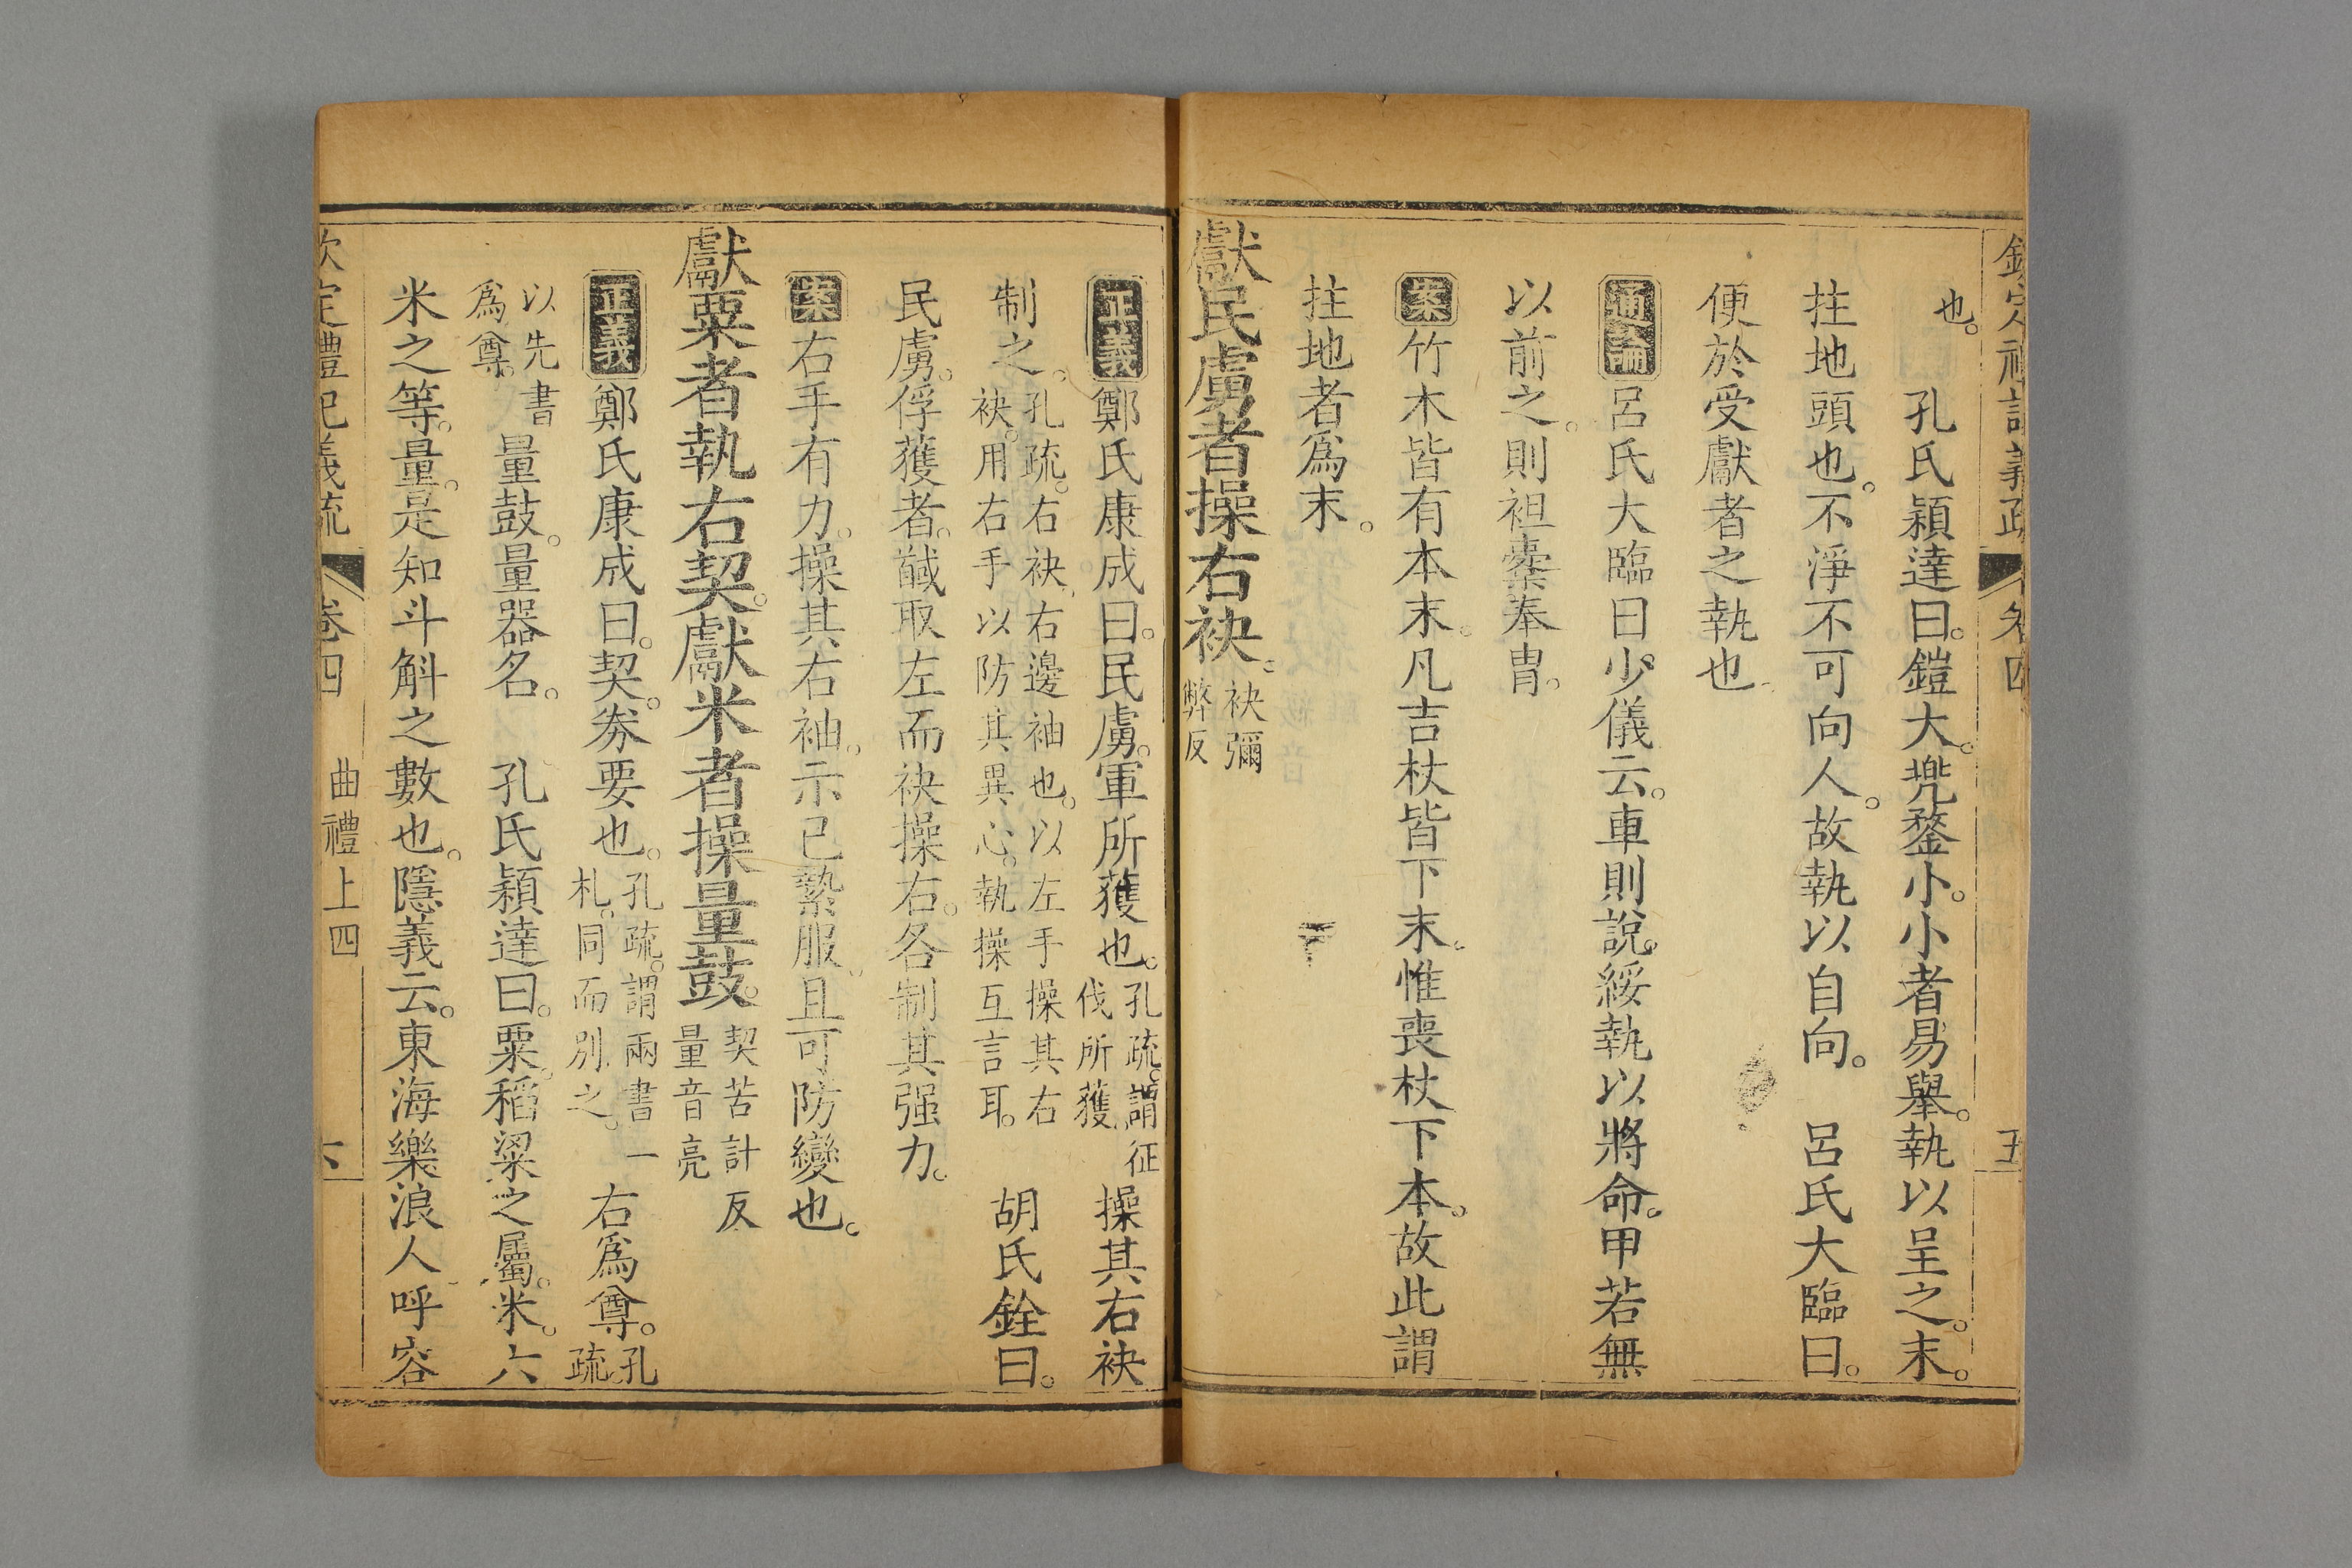 欽定禮記義疏 卷四 五
也。 孔氏穎達曰。鎧大。兠鍪小。小者易舉。執以呈之。末。
拄地頭也。不淨不可向人。故執以自向。 呂氏大臨曰。
便於受獻者之執也。
通論呂氏大臨曰少儀云。車則說。綏執以將命。甲若無
以前之。則袒櫜奉冑。
案竹木皆有本末。凡吉杖皆下末。惟喪杖下本。故此謂
拄地者為末。
獻民虜者操右袂。袂彌弊反
正義鄭氏康成曰。民虜。軍所獲也。孔疏。謂征伐所獲。 操其右袂
制之。孔疏。右袂。右邊袖也。以左手操其右袂。用右手以防其異心。執操互言耳。 胡氏銓曰。
民虜。俘獲者。馘取左而袂操右。各制其强力。
案右手有力。操其右袖。示已縶服。且可防變也。
獻粟者執右契。獻米者操量鼓。契苦計反 量音亮
正義鄭氏康成曰。契。劵要也。孔疏。謂兩書一札。同而別之。 右爲尊。孔疏。
以先書爲尊。 量鼓。量器名。 孔氏穎達曰。粟。稻粱之屬。米。六
米之等。量。是知斗斛之數也。隱義云。東海樂浪人呼容
欽定禮記義疏 卷四 曲禮上四 六